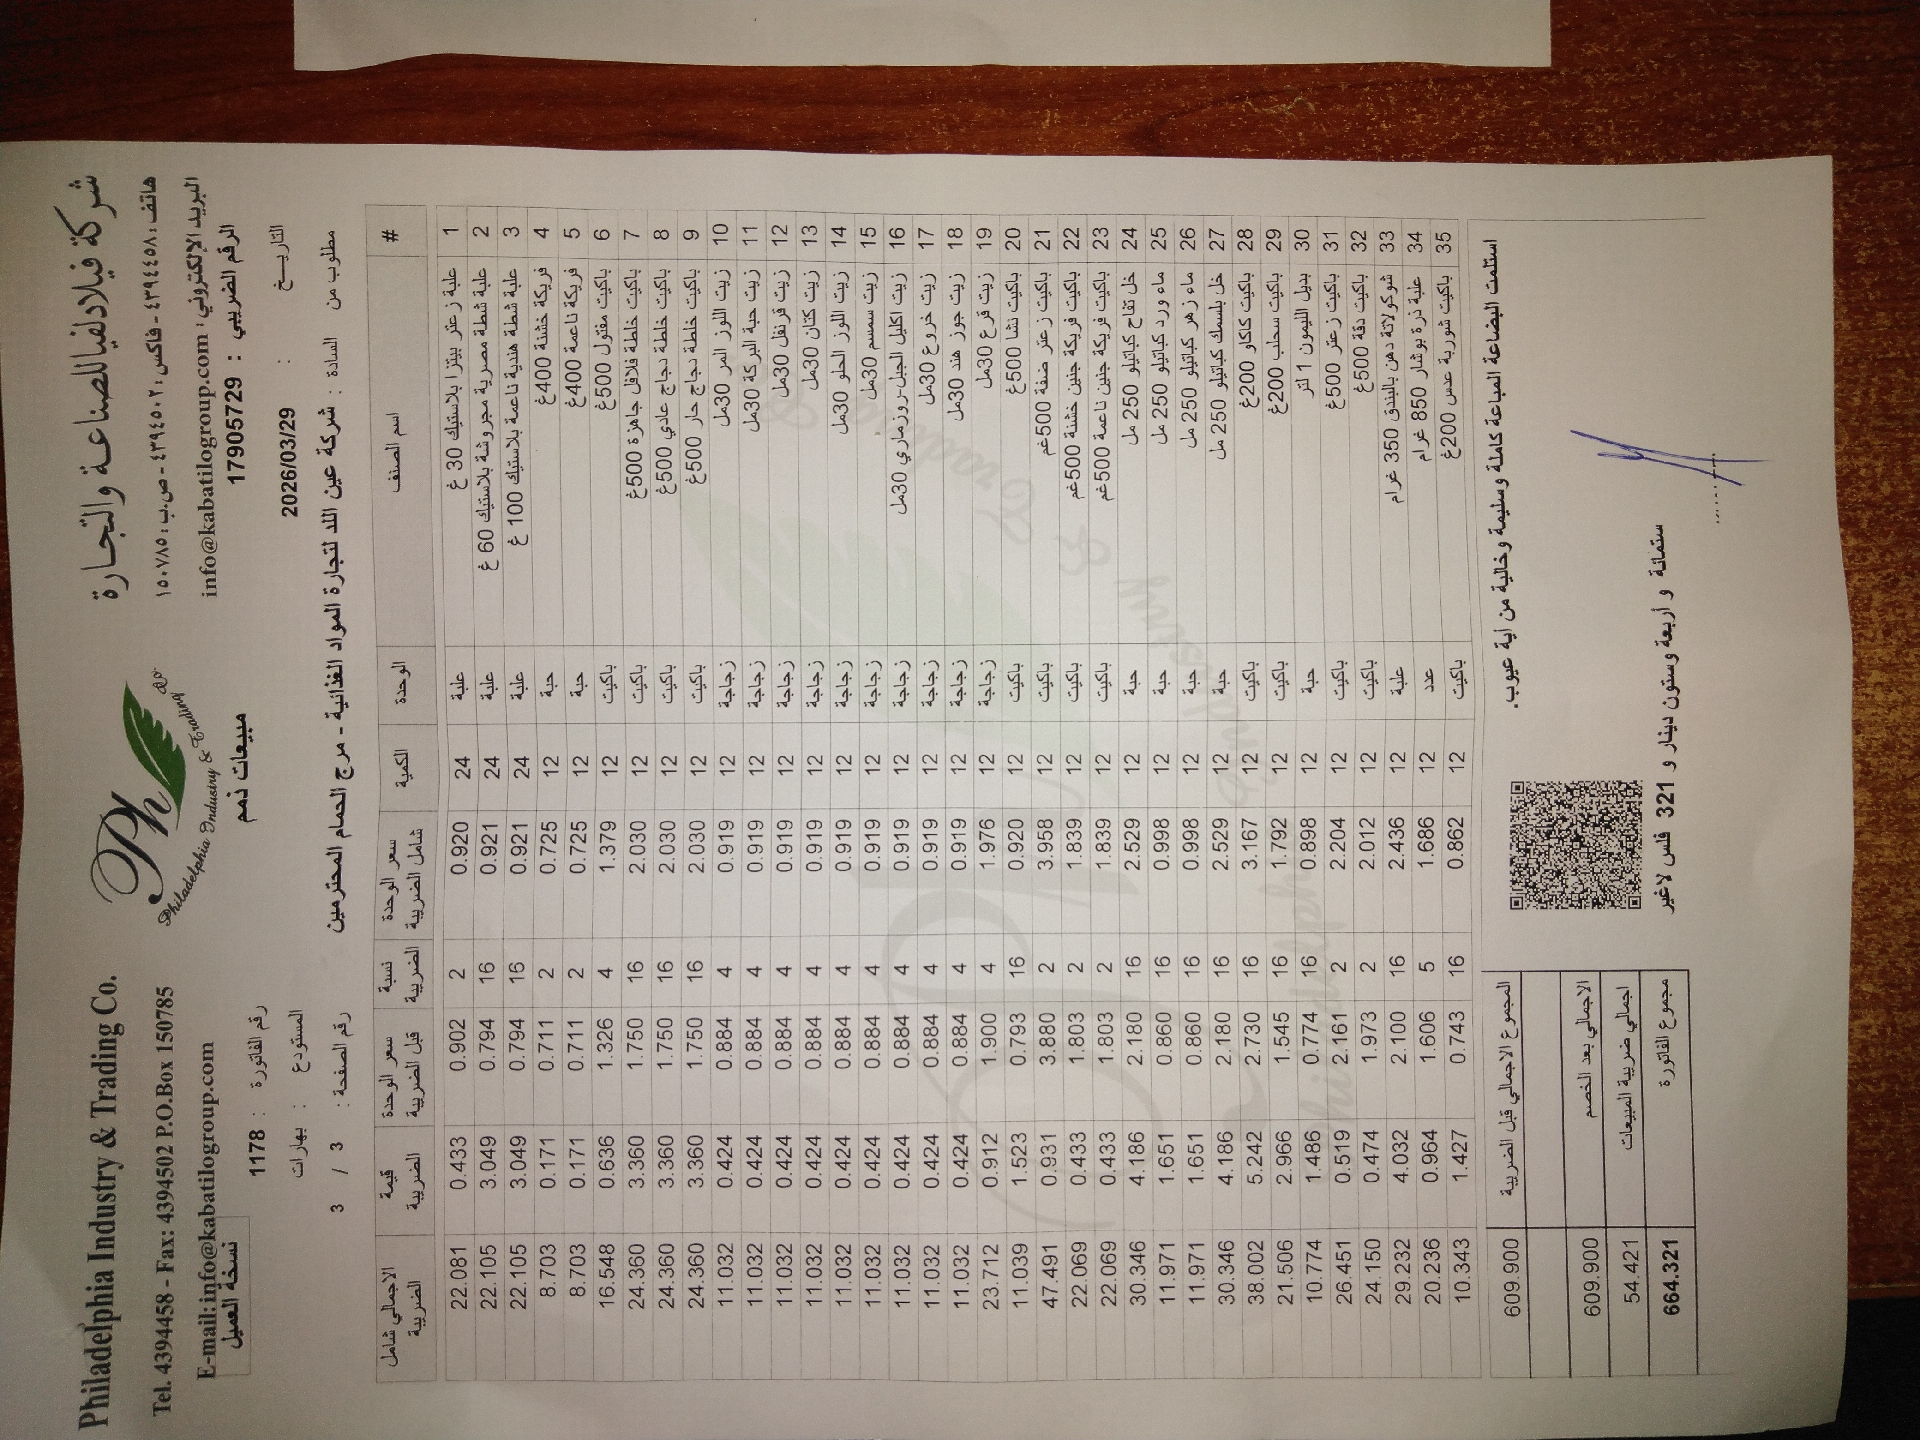 Philadelphia Industry & Trading Co.
Tel. 4394458 - Fax: 4394502 P.O.Box 150785
E-mail: info@kabatilogroup.com
Ph
Philadelphia Industry & Trading Co
شركة فيلادلفيا للصناعة والتجارة
هاتف: ٤٣٩٤٤٥٨ - فاكس: ٤٣٩٤٥٠٢ - ص.ب: ١٥٠٧٨٥
البريد الإلكتروني: info@kabatilogroup.com
نسخة العميل
مبيعات ذمم
الرقم الضريبي : 17905729
رقم الفاتورة : 1178
التاريخ : 2026/03/29
المستودع : بهارات
رقم الصفحة : 3 / 3
مطلوب من السادة : شركة عين اللد لتجارة المواد الغذائية - مرج الحمام المحترمين
# اسم الصنف الوحدة الكمية سعر الوحدة شامل الضريبة نسبة الضريبة سعر الوحدة قبل الضريبة قيمة الضريبة الاجمالي شامل الضريبة
1 علبة زعتر بيتزا بلاستيك 30 غ علبة 24 0.920 2 0.902 0.433 22.081
2 علبة شطة مصرية مجروشة بلاستيك 60 غ علبة 24 0.921 16 0.794 3.049 22.105
3 علبة شطة هندية ناعمة بلاستيك 100 غ علبة 24 0.921 16 0.794 3.049 22.105
4 فريكة خشنة 400غ حبة 12 0.725 2 0.711 0.171 8.703
5 فريكة ناعمة 400غ حبة 12 0.725 2 0.711 0.171 8.703
6 باكيت مفتول 500غ باكيت 12 1.379 4 1.326 0.636 16.548
7 باكيت خلطة فلافل جاهزة 500غ باكيت 12 2.030 16 1.750 3.360 24.360
8 باكيت خلطة دجاج عادي 500غ باكيت 12 2.030 16 1.750 3.360 24.360
9 باكيت خلطة دجاج حار 500غ باكيت 12 2.030 16 1.750 3.360 24.360
10 زيت اللوز المر 30مل زجاجة 12 0.919 4 0.884 0.424 11.032
11 زيت حبة البركة 30مل زجاجة 12 0.919 4 0.884 0.424 11.032
12 زيت قرنفل 30مل زجاجة 12 0.919 4 0.884 0.424 11.032
13 زيت كتان 30مل زجاجة 12 0.919 4 0.884 0.424 11.032
14 زيت اللوز الحلو 30مل زجاجة 12 0.919 4 0.884 0.424 11.032
15 زيت سمسم 30مل زجاجة 12 0.919 4 0.884 0.424 11.032
16 زيت اكليل الجبل-روزماري 30مل زجاجة 12 0.919 4 0.884 0.424 11.032
17 زيت خروع 30مل زجاجة 12 0.919 4 0.884 0.424 11.032
18 زيت جوز هند 30مل زجاجة 12 0.919 4 0.884 0.424 11.032
19 زيت قرع 30مل زجاجة 12 1.976 4 1.900 0.912 23.712
20 باكيت نشا 500غ باكيت 12 0.920 16 0.793 1.523 11.039
21 باكيت زعتر ضفة 500غم باكيت 12 3.958 2 3.880 0.931 47.491
22 باكيت فريكة جنين خشنة 500غم باكيت 12 1.839 2 1.803 0.433 22.069
23 باكيت فريكة جنين ناعمة 500غم باكيت 12 1.839 2 1.803 0.433 22.069
24 خل تفاح كباتيلو 250 مل حبة 12 2.529 16 2.180 4.186 30.346
25 ماء ورد كباتيلو 250 مل حبة 12 0.998 16 0.860 1.651 11.971
26 ماء زهر كباتيلو 250 مل حبة 12 0.998 16 0.860 1.651 11.971
27 خل بلسمك كباتيلو 250 مل حبة 12 2.529 16 2.180 4.186 30.346
28 باكيت كاكاو 200غ باكيت 12 3.167 16 2.730 5.242 38.002
29 باكيت سحلب 200غ باكيت 12 1.792 16 1.545 2.966 21.506
30 بديل الليمون 1 لتر حبة 12 0.898 16 0.774 1.486 10.774
31 باكيت زعتر 500غ باكيت 12 2.204 2 2.161 0.519 26.451
32 باكيت دقة 500غ باكيت 12 2.012 2 1.973 0.474 24.150
33 شوكولاتة دهن بالبندق 350 غرام علبة 12 2.436 16 2.100 4.032 29.232
34 علبة ذرة بوشار 850 غرام عدد 12 1.686 5 1.606 0.964 20.236
35 باكيت شوربة عدس 200غ باكيت 12 0.862 16 0.743 1.427 10.343
استلمت البضاعة المباعة كاملة وسليمة وخالية من اية عيوب.
المجموع الاجمالي قبل الضريبة 609.900
الاجمالي بعد الخصم 609.900
اجمالي ضريبة المبيعات 54.421
مجموع الفاتورة 664.321
ستمائة و أربعة وستون دينار و 321 فلس لاغير